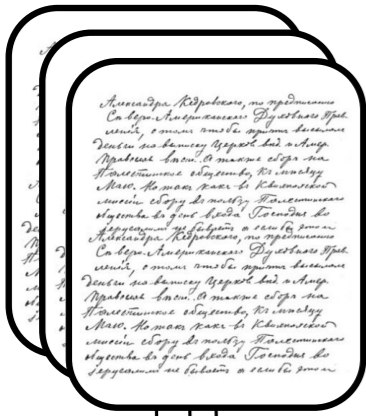 Александра Кедровского, по предписанию
Северо-Американского Духовнаго Прав
ленія, о томъ чтобы причты высылали
деньги на выписку Церков. вѣд. и Амер.
Правосл. вѣст. А также сборъ на
Палестинское общество, къ мѣсяцу
Маю. Но такъ какъ въ Квихпакской
миссіи сбору въ пользу Палестинскаго
общества въ день входа Господня во
Іерусалимъ не бываетъ а если бы этотъ
Александра Кедровского, по предписанию
Северо-Американского Духовнаго Прав
ленія, о томъ чтобы причты высылали
деньги на выписку Церков. вѣд. и Амер.
Правосл. вѣст. А также сборъ на
Палестинское общество, къ мѣсяцу
Маю. Но такъ какъ въ Квихпакской
миссіи сбору въ пользу Палестинскаго
общества въ день входа Господня во
Іерусалимъ не бываетъ а если бы этотъ